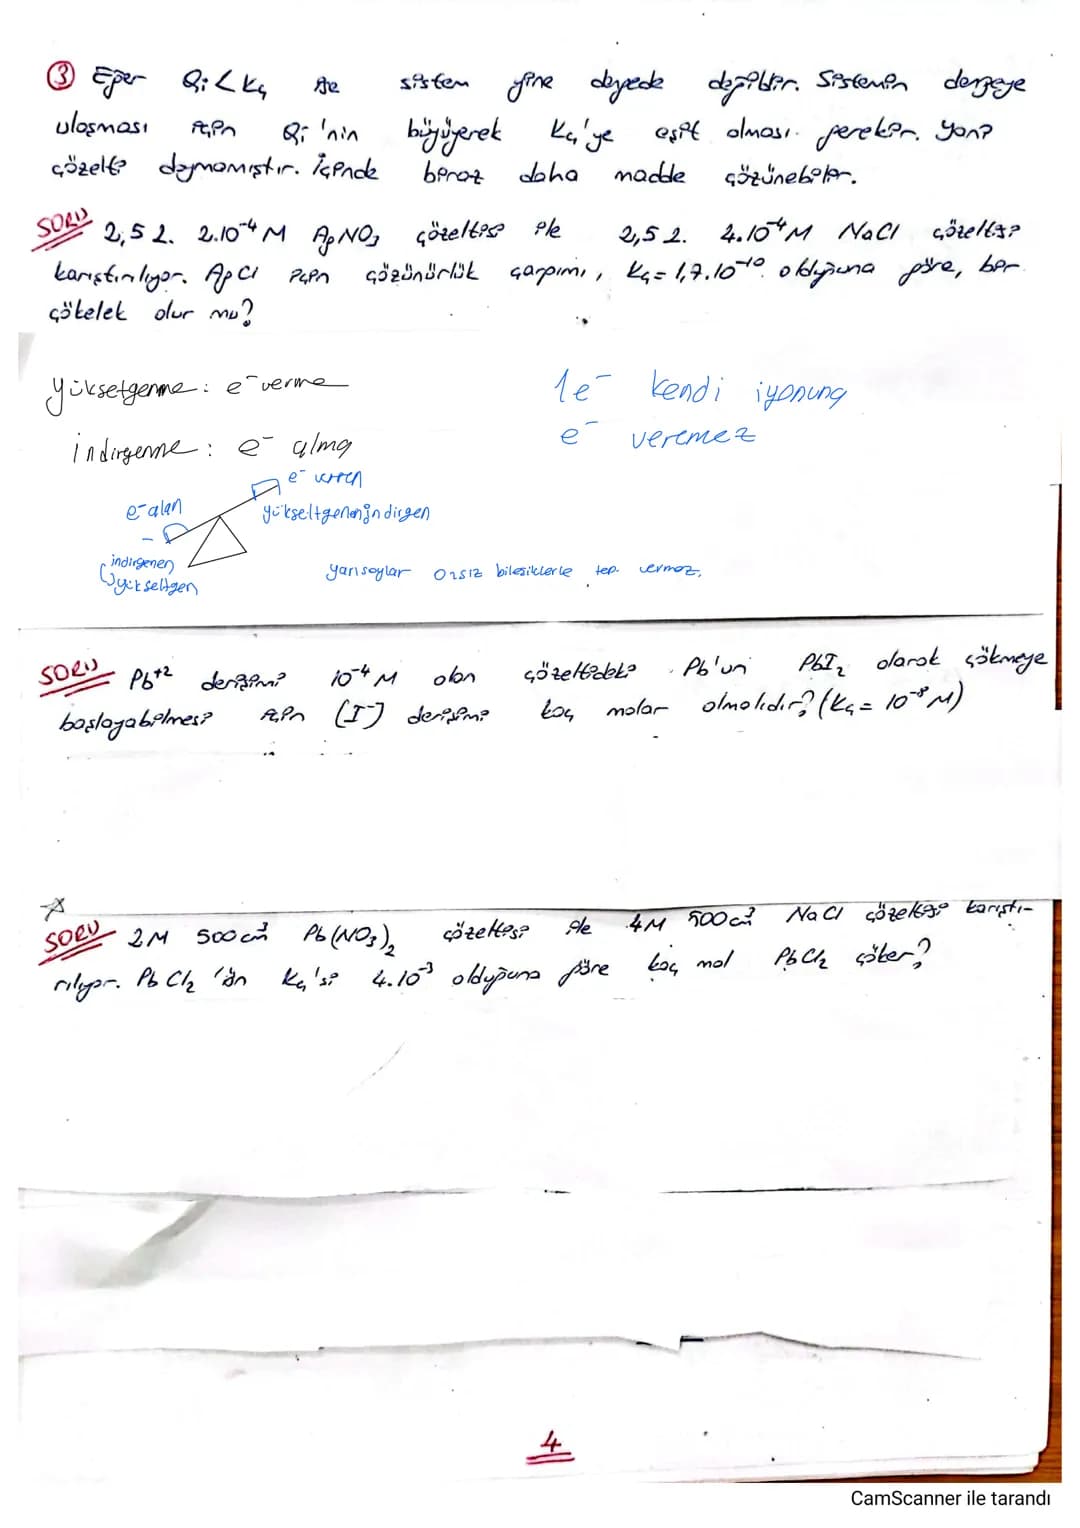 ③ Eğer Qi < Kç ise sistem yine dengede değildir. Sistemin dengeye
ulaşması için Qi'nin büyüyerek Kç'ye eşit olması gerekir. Yani
çözelti doymamıştır. İçinde biraz daha madde çözünebilir.
SORU 2,5 L. 2.10⁻⁴ M AgNO₃ çözeltisi ile 2,5 L. 4.10⁻⁴ M NaCl çözeltisi
karıştırılıyor. AgCl için çözünürlük çarpımı, Kç = 1,7.10⁻¹⁰ olduğuna göre, bir
çökelek olur mu?
yüksetgenme : e⁻ verme
indirgenme : e⁻ alma
1e⁻ kendi iyonuna
e⁻ veremez
e⁻ veren
e⁻ alan
yükseltgenen indirgen
indirgenen
yükseltgen
yarısoylar Ozsiz bilesiklerle tep. vermez.
SORU Pb⁺² derişimi 10⁻⁴ M olan çözeltideki Pb'un PbI₂ olarak çökmeye
başlayabilmesi için [I⁻] derişimi kaç molar olmalıdır? (Kç = 10⁻⁸ M)
SORU 2M 500 cm³ Pb(NO₃)₂ çözeltisi ile 4M 500 cm³ NaCl çözeltisi karıştı-
rılıyor. PbCl₂ 'ün Kç'si 4.10⁻³ olduğuna göre kaç mol PbCl₂ çöker?
4
CamScanner ile tarandı